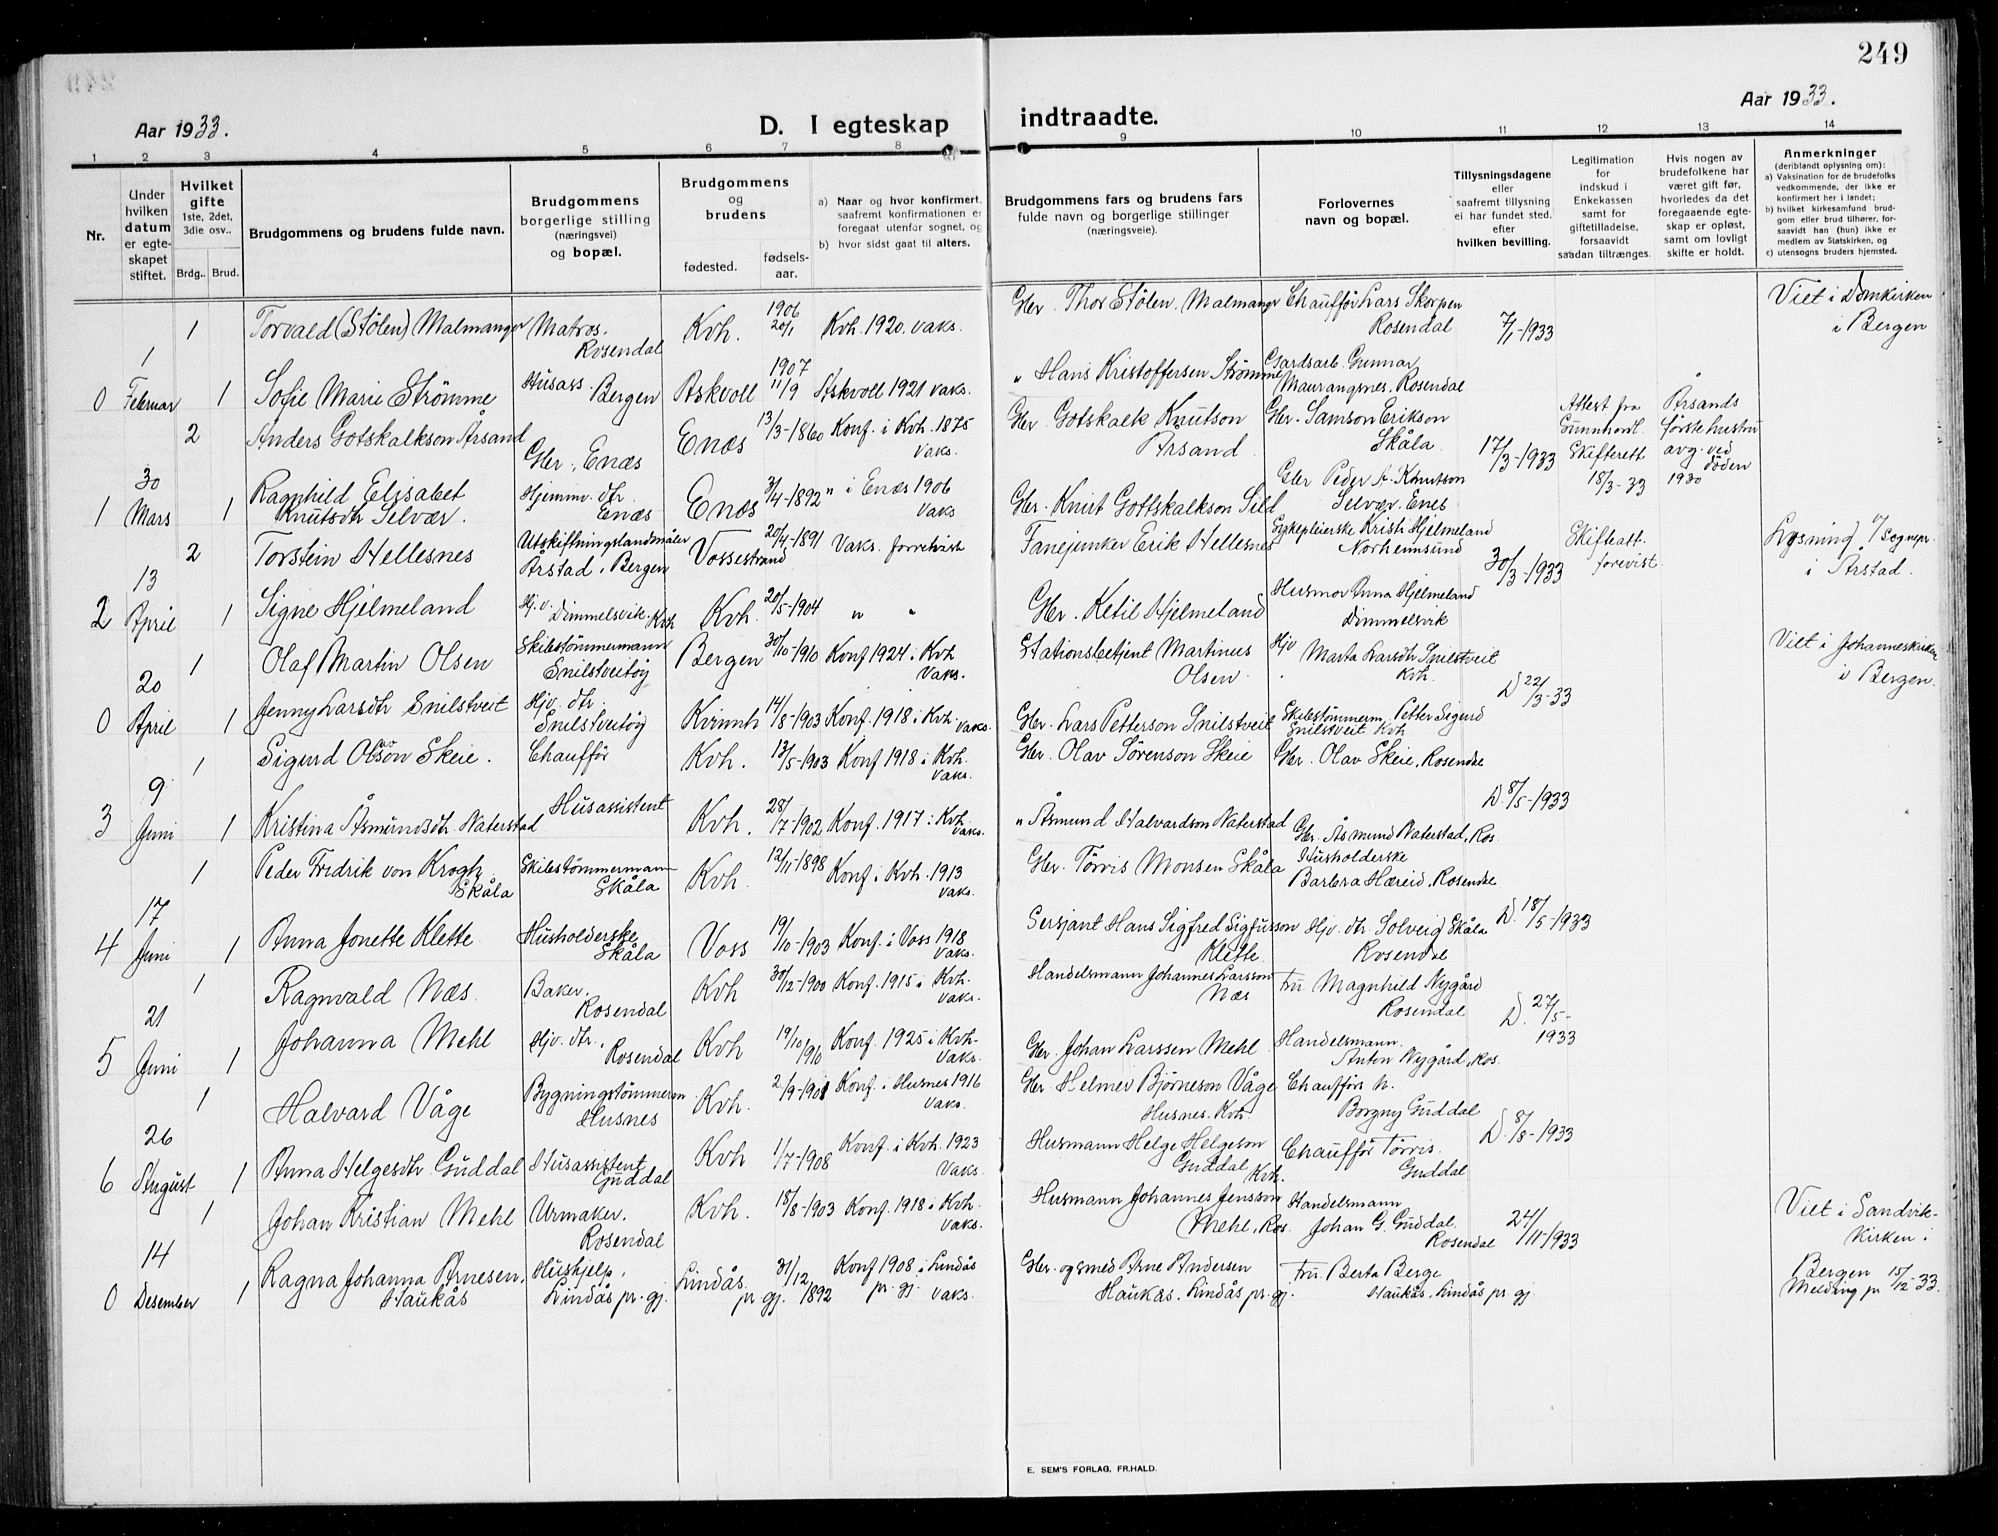 249
Aar 1933.
D. I egteskap
indtraadte.
Aar 1933.
1 2 3 4 5 6 7 8 9 10 11 12 13 14
Nr.
Under hvilken datum er egteskapet stiftet.
Hvilket gifte 1ste, 2det, 3die osv..
Brdg.. Brud.
Brudgommens og brudens fulde navn.
Brudgommens borgerlige stilling (næringsvei) og bopæl.
Brudgommens og brudens
fødested.
fødselsaar.
a) Naar og hvor konfirmert, saafremt konfirmationen er foregaat utenfor sognet, og
b) hvor sidst gaat til alters.
Brudgommens fars og brudens fars fulde navn og borgerlige stillinger (næringsveie).
Forlovernes navn og bopæl.
Tillysningsdagene eller saafremt tillysning ei har fundet sted, efter hvilken bevilling.
Legitimation for indskud i Enkekassen samt for giftetilladelse, forsaavidt saadan tiltrænges.
Hvis nogen av brudefolkene har været gift før, hvorledes da det foregaaende egteskap er opløst, samt om lovligt skifte er holdt.
Anmerkninger (deriblandt oplysning om):
a) Vaksination for de brudefolks vedkommende, der ikke er konfirmert her i landet;
b) hvilket kirkesamfund brudgom eller brud tilhører, forsaavidt han (hun) ikke er medlem av Statskirken, og
c) utensogns bruders hjemsted.
1 Torvald (Stølen) Malmanger Matros. Rosendal Kvh. 1906 20/1 Kvh. 1920. vaks. Gbr. Thor Stølen. Malmanger Chauffør Lars Skorpen Rosendal 7/1-1933 Viet i Domkirken i Bergen
0 1 Februar 1 Sofie Marie Strømme Husass. Bergen Askvoll 1907 11/9 Askvoll 1921 vaks. " Hans Kristoffersen Strømme Gardsarb. Gunnar Maurangsnes. Rosendal
2 Anders Gotskalkson Årsand Gbr. Enæs Enæs 13/3-1860 Konf. i Kvh. 1875 Vaks. Gbr. Gotskalk Knutson Årsand Gbr. Samson Erikson Skåla 17/3-1933 Attest fra Sunnhordl. Skifterett 18/3-33 Årsands første hustru avg. ved døden 1930
1 30 Mars 1 Ragnhild Elisabet Knutsdtr Selvær. Hjemmv. dtr. Enæs Enæs 3/4-1892 " i Enæs 1906 Vaks Gbr. Knut Gottskalkson Gbr Peder A. Knutson Selvær. Enes
2 Torstein Hellesnes Utskiftningslandmåler Årstad. Bergen Vossestrand 20/4-1891 Vaks. forretvisk Fanejunker Erik Hellesnes Sykepleierske Krist. Hjelmeland Norheimsund 30/3-1933 Skifteatt. forevist. Lysning v/ sognepr. i Årstad.
2 13 April 1 Signe Hjelmeland Hj. v. Dimmelsvik. Kvh Kvh. 20/5-1904 " " Gbr. Ketil Hjelmeland Husmor Anna Hjelmeland Dimmelsvik
1 Olaf Martin Olsen Skibstømmermann Snilstveitøy Bergen 30/10-1910 Konf 1924 i Kvh Vaks. Stationsbetjent Martinus Olsen Hjv Marta Larsdtr Snilstveit Kvh. D 22/3-33 Viet i Johanneskirken i Bergen.
0 20 April 1 Jenny Larsdtr Snilstveit Hjv. dtr. Snilstveitøy Kvinnh 14/8-1903 Konf. 1918 i Kvh. Vaks. Gbr. Lars Petterson Snilstveit Skibstømmerm. Petter Sigurd Snilstveit Kvh
1 Sigurd Olsøn Skeie. Chauffør Kvh. 13/5-1903 Konf 1918 i Kvh. Vaks. Gbr. Olav Sørenson Skeie Gbr. Olav Skeie, Rosendal
3 9 Juni 1 Kristina Åsmundsdtr. Naterstad Husassistent Kvh. 28/7-1902 Konf. 1917 i Kvh. vaks. " Åsmund Halvardson Naterstad Gbr. Åsmund Naterstad, Ros. D. 8/5-1933
1 Peder Fredrik von Krogh Skåla Skibstømmermann Skåla Kvh. 12/11-1898 Konf. i Kvh. 1913 vaks. Gbr. Tørris Monsen Skåla Husholderske Barbra Hæreid. Rosendal
4 17 Juni 1 Anna Jonette Klette Husholderske, Skåla Voss 19/10-1903 Konf. i Voss 1918 Vaks. Sersjant Hans Sigfred Sigfusson Klette Hjv. dtr Solveig Skåla Rosendal D. 18/5-1933
1 Ragnvald Næs. Baker. Rosendal Kvh 30/12-1900 Konf. 1915 i Kvh. vaks. Handelsmann Johannes Larsson Næs Fru Magnhild Nygård Rosendal D. 27/5-1933
5 21 Juni 1 Johanna Mehl Hjv. dtr. Rosendal Kvh 19/10 1910 Konf. 1925 i Kvh- Vaks. Gbr. Johan Larssen Mehl Handelsmann Anton Nygård, Ros.
1 Halvard Våge Bygningstømmerm. Husnes Kvh. 2/9-1901 Konf. i Husnes 1916 Vaks. Gbr. Helmer Bjørneson Våge Husnes. Kvh. Chaufførs h. Borgny Guddal D. 8/8-1933
6 26 August 1 Anna Helgesdtr Guddal Husassistent Guddal Kvh 1/7-1908 Konf. i Kvh. 1923 Vaks. Husmann Helge Helgeson Guddal Kvh. Chauffør Tørris Guddal
1 Johan Kristian Mehl Urmaker. Rosendal Kvh. 18/8-1903 Konf. 1918 i Kvh. vaks. Husmann Johannes Jensson Mehl, Ros. Handelsmann Johan G. Guddal, Rosendal 24/11-1933 Viet i Sandvikkirken i Bergen Melding pr 15/12-33.
0 14 Desember 1 Ragna Johanna Arnesen. Haukås Hushjelp. Lindås pr. gj. Lindås pr gj. 31/12 1892 Konf 1908 i Lindås pr. gj. vaks. Gbr. og smed Arne Andersen Haukås. Lindås pr gj. Fru Berta Berge Haukås. Lindås pr. gj
E. SEM'S FORLAG, FR.HALD.